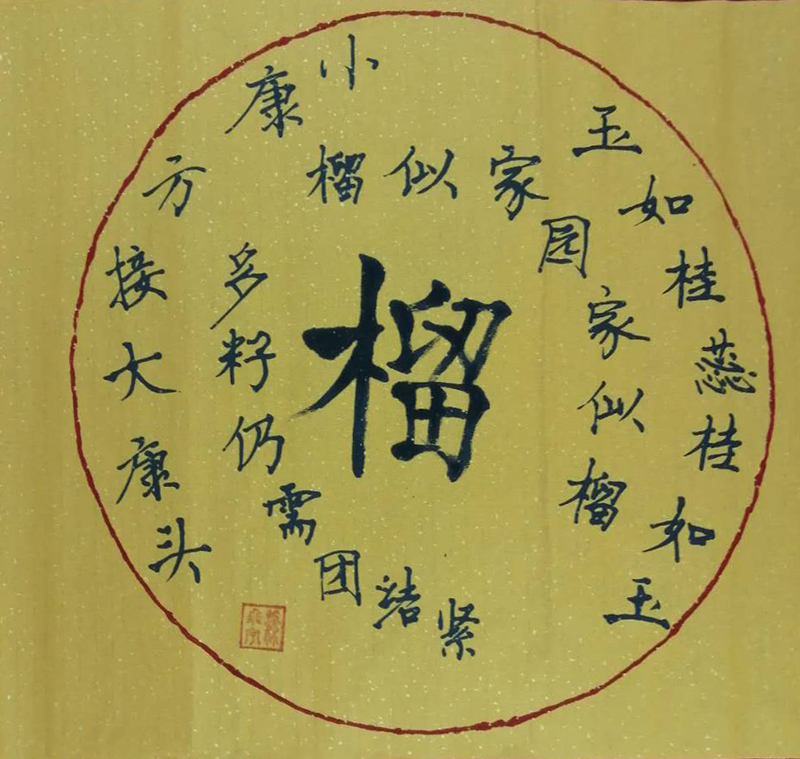 榴
玉如桂蕊桂如玉
榴似家园家似榴
多籽仍需团结紧
小康方接大康头